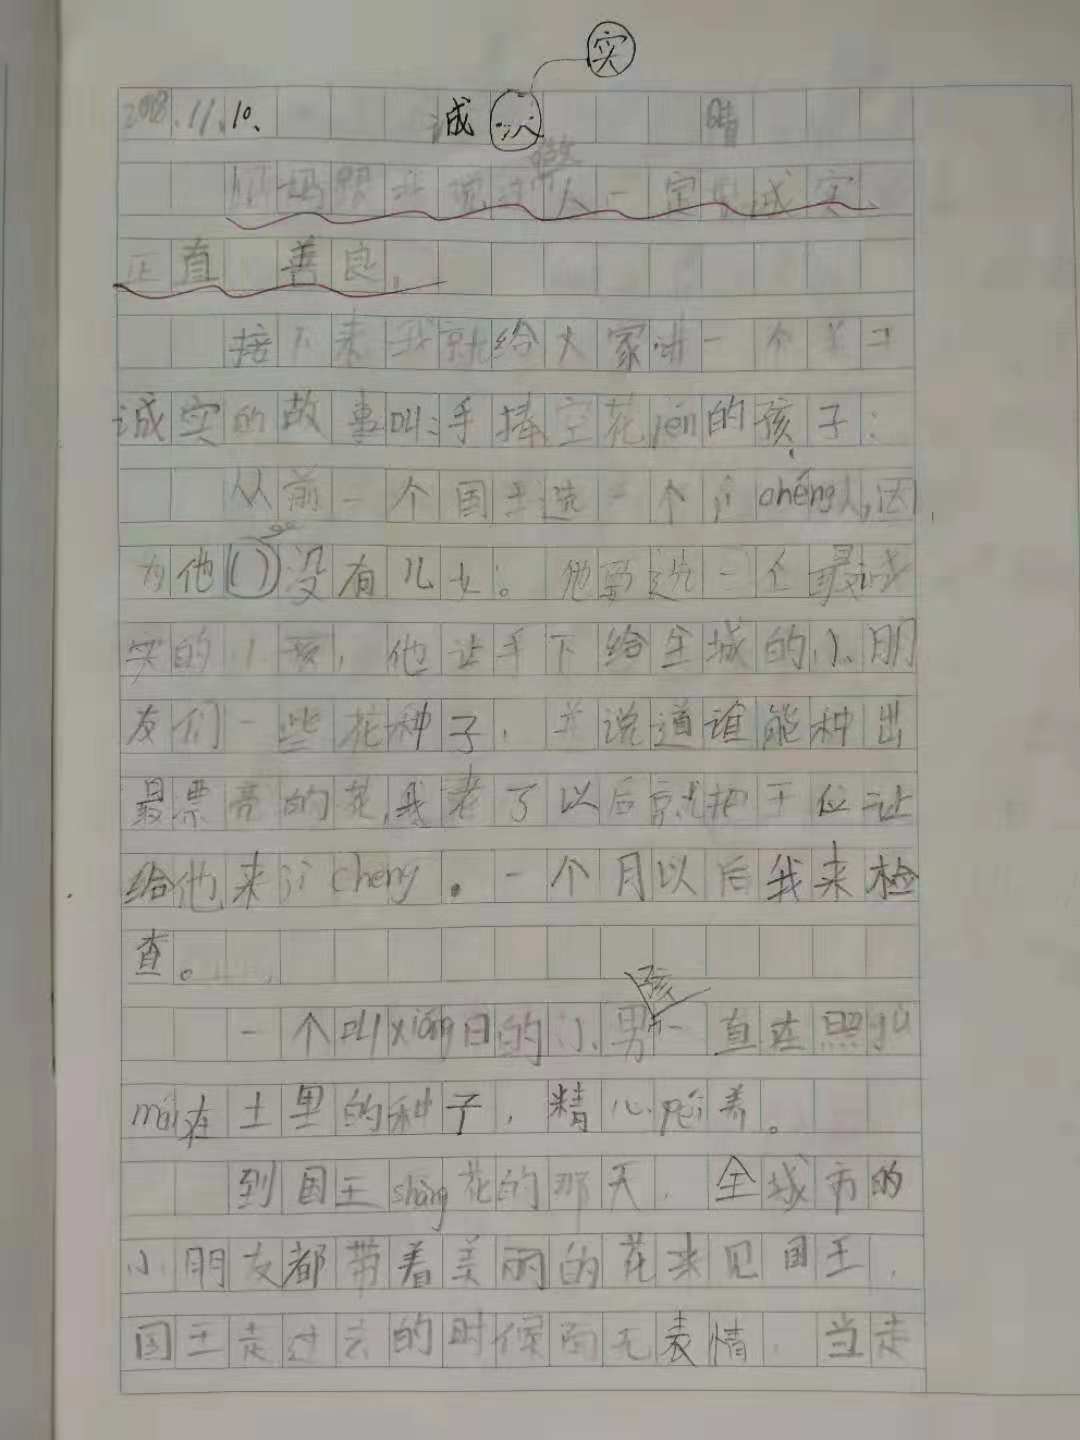 实
2018.11.10、 诚以 晴
做
妈妈跟我说过人一定要诚实、
正直 善良，
接下来我就给大家讲一个关于
诚实的故事叫：手捧空花pén的孩子：
从前一个国王选一个jì chéng人，因
为他()没有儿女。他要选一个最诚
实的小孩，他让手下给全城的小朋
友们一些花种子，并说道谁能种出
最票亮的花，我老了以后就把王位让
给他来jì cheng。一个月以后我来检
查。
孩
一个叫xióng日的小男一直在照gù
mái在土里的种子，精心péi养。
到国王shǎng花的那天，全城市的
小朋友都带着美丽的花来见国王，
国王走过去的时候面无表情，当走